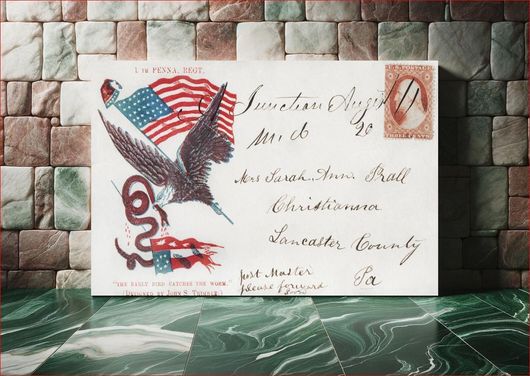 1 TH PENNA. REGT.
Junction Augst
Md 20
U.S. POSTAGE
THREE CENTS
Mrs Sarah. Ann. Prall
Christianna
Lancaster County
Pa
Just Master
please forward
soon
"THE EARLY BIRD CATCHES THE WORM."
(DESIGNED BY JOHN S. TRIMBLE.)